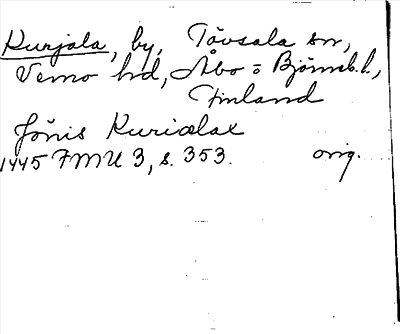 Kurjala, by, Tövsala sn,
Vemo hd, Åbo o Björneb. l.,
Finland
Jönis Kurialax
1445 FMU 3, s. 353. orig.